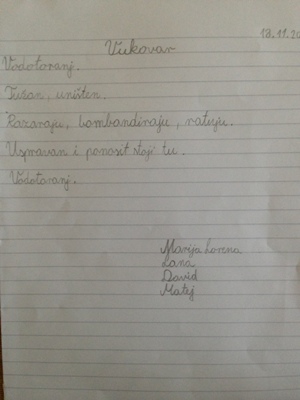 18.11.20
Vukovar
Vodotoranj.
Tužan, uništen.
Razaraju, bombandiraju, ratuju.
Uspravan i ponosit stoji tu.
Vodotoranj.
Marija Lorena
Lana
David
Matej